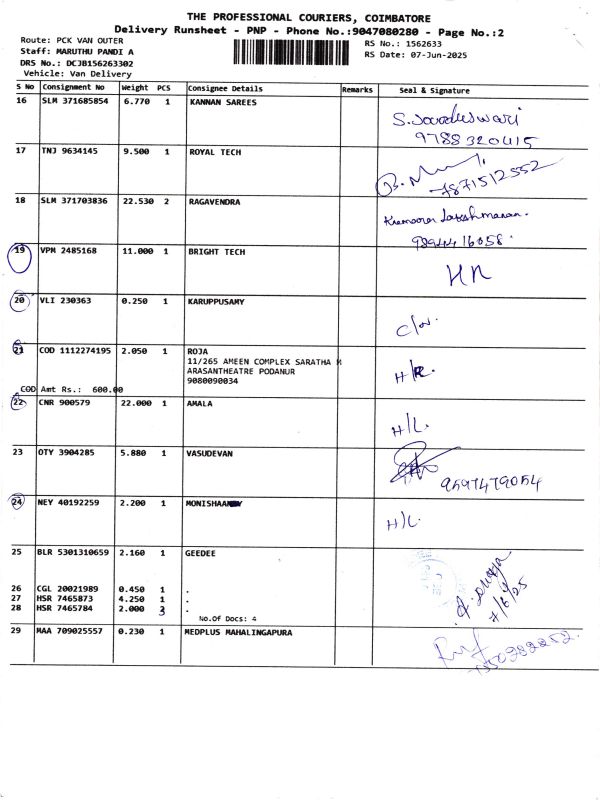 THE PROFESSIONAL COURIERS, COIMBATORE
Delivery Runsheet - PNP - Phone No.:9047080280 - Page No.:2
Route: PCK VAN OUTER
RS No.: 1562633
Staff: MARUTHU PANDI A
RS Date: 07-Jun-2025
DRS No.: DCJB156263302
Vehicle: Van Delivery
S No Consignment No Weight PCS Consignee Details Remarks Seal & Signature
16 SLM 371685854 6.770 1 KANNAN SAREES
9788320415
17 TNJ 9634145 9.500 1 ROYAL TECH
7871512552
18 SLM 371703836 22.530 2 RAGAVENDRA
9894416058
19 VPM 2485168 11.000 1 BRIGHT TECH
20 VLI 230363 0.250 1 KARUPPUSAMY
21 COD 1112274195 2.050 1 ROJA
11/265 AMEEN COMPLEX SARATHA M
ARASANTHEATRE PODANUR
9080090034
COD Amt Rs.: 600.00
22 CNR 900579 22.000 1 AMALA
H/L.
23 OTY 3904285 5.880 1 VASUDEVAN
9597479054
24 NEY 40192259 2.200 1
H/L.
25 BLR 5301310659 2.160 1 GEEDEE
26 CGL 20021989 0.450 1 .
27 HSR 7465873 4.250 1 .
28 HSR 7465784 2.000 3 .
7/6/25
No.Of Docs: 4
29 MAA 709025557 0.230 1 MEDPLUS MAHALINGAPURA